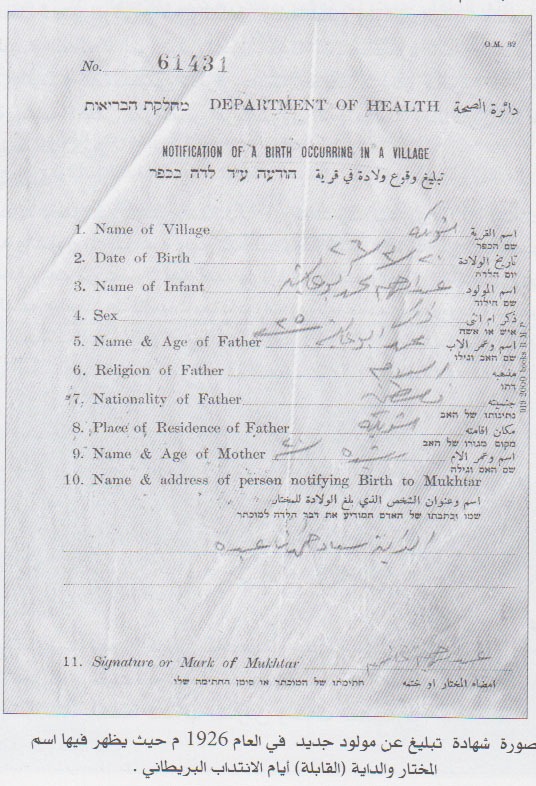 O.M. 82
No. 61431
מחלקת הבריאות DEPARTMENT OF HEALTH دائرة الصحة
NOTIFICATION OF A BIRTH OCCURRING IN A VILLAGE
הודעה ע״ד לדה בכפר تبليغ وقوع ولادة في قرية
1. Name of Village شويكه اسم القرية
שם הכפר
2. Date of Birth تاريخ الولادة
יום הלדה
3. Name of Infant عبد الرحيم محمد اسم المولود
שם הילוד
4. Sex ذكر ذكر ام انثى
איש או אשה
5. Name & Age of Father محمد ٣٥ اسم وعمر الاب
שם האב וגילו
6. Religion of Father اسلام مذهبه
דתו
*7. Nationality of Father فلسطيني جنسيته
נתינותו של האב
8. Place of Residence of Father شويكه مكان اقامته
מקום מגורו של האב
9. Name & Age of Mother اسم وعمر الام
שם האם וגילה
10. Name & address of person notifying Birth to Mukhtar
اسم وعنوان الشخص الذي بلغ الولادة للمختار
שמו וכתבתו של האדם המודיע את דבר הלדה למוכתר
الداية
11. Signature or Mark of Mukhtar عبد الرحيم امضاء المختار او ختمه
חתימתו של המוכתר או סימן החתימה שלו
صورة شهادة تبليغ عن مولود جديد في العام 1926 م حيث يظهر فيها اسم
المختار والداية (القابلة) أيام الانتداب البريطاني .